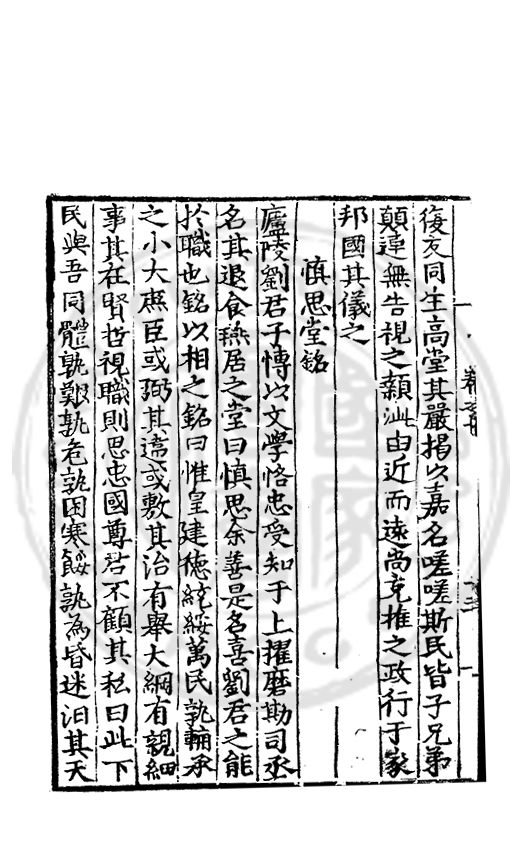 復友同生高堂其嚴揭以嘉名嗟嗟斯民皆子兄弟
顛連無告視之顙泚由近而遠尚克推之政行于家
邦國其儀之
慎思堂銘
廬陵劉君子慱以文學恪忠受知于上擢磨勘司丞
名其退食燕居之堂曰慎思余善是名喜劉君之能
扵職也銘以相之銘曰惟皇建德綂綏萬民孰輔承
之小大庶臣或弼其違或敷其治有舉大綱有親細
事其在賢哲視職則思忠國尊君不顧其私曰此下
民與吾同體孰艱孰危孰困寒餒孰為昏迷汩其天